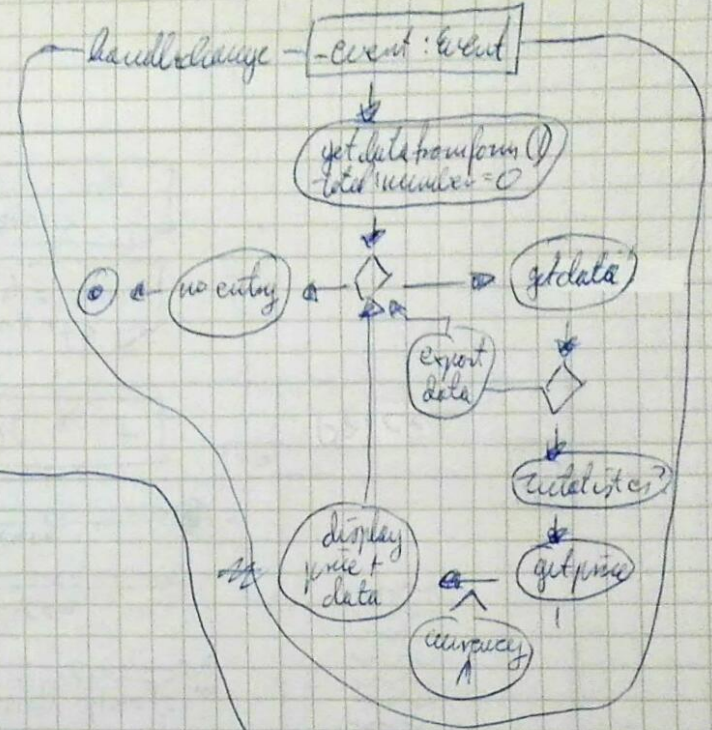 handlechange
-event : Event
getdatafromform()
total:number=0
no entry
getdata
export
data
getprice
display
price +
data
currency